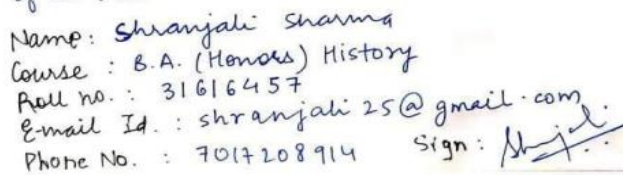 Name: Shranjali Sharma
Course : B.A. (Honors) History
Roll no. : 31616457
E-mail Id. : shranjali25@gmail.com
Phone No. : 7017208914 Sign :